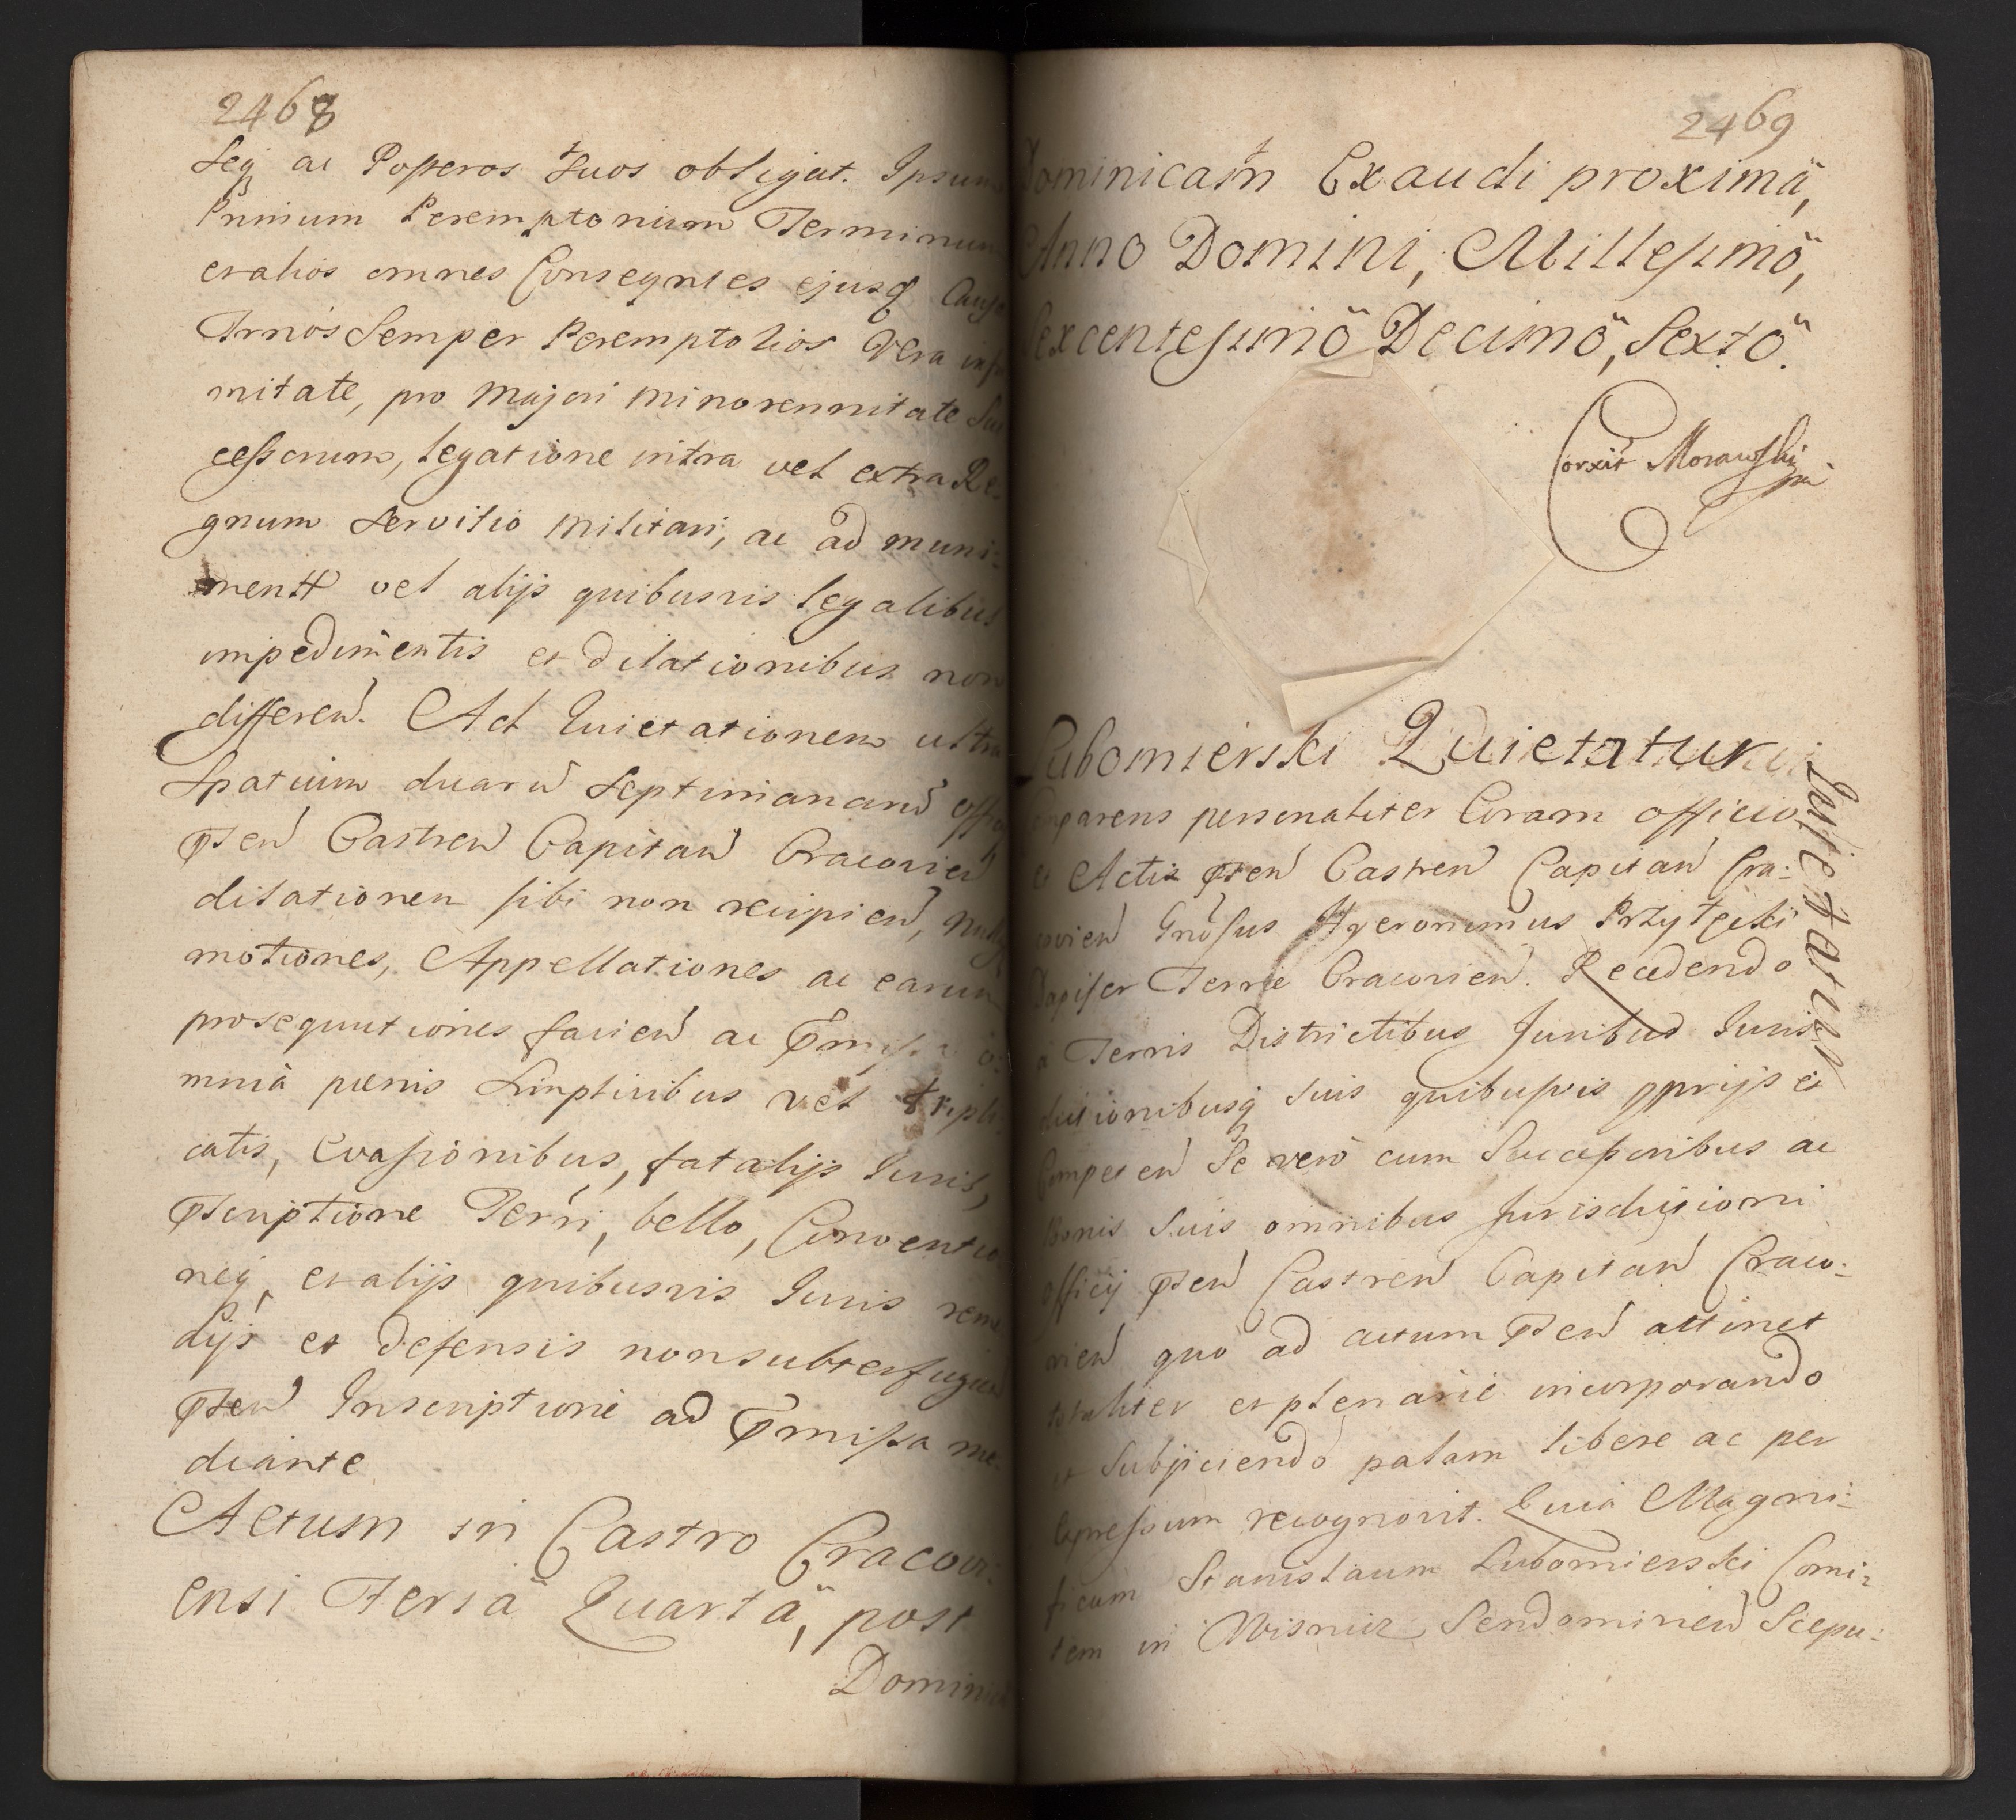 2468
Seq̃ ac Posteros Suos obligat. Ipsum
Primum Peremptorium Terminum
et alios omnes Conseqntes ejusq Causæ
Trnós Semper Peremptorios Vera infir
mitate, pro Majori minorennitate Suc
cessorum, legatione intra vel extra Re-
gnum Servitio Militari, ac ad muni=
mentt vel alijs quibusvis legalibus
impedimentis et dilationibus non
differen̄. Ad Quietationem ultra
Spatium duarū Septimanarū offi
pnten̄ Castren̄ Capitan̄ Cracovien̄
dilationem sibi non recipien̄, nullas
motiones, Appellationes ac earum
prosequutiones facien̄ ac pmissa o=
mnia pœnis simplicibus vel tripli
catis, Evasionibus, fatalijs Juris,
pscriptione Terri, bello, Conventio
neq, et alijs quibusvis Juris reme
dijs et defensis non subterfugien̄
pnten̄ Inscriptione ad pmissa me=
diante
Actum in Castro Cracovi=
ensi Feriä Quartä, post
Dominic
2469
Dominicam Exaudi proximä,
Anno Domini, Millesimö,
Sexcentesimö Decimö, Sextö.
Corxit Morawski mp
Lubomierski Quietatur
Comparens personaliter Coram officio
et Actis pnten̄ Castren̄ Capitan̄ Cra=
covien̄ Gnosus Hyeronimus Przyłęcki
Dapifer Terræ Cracovien̄. Recedendo
a Terris Districtibus Juribus Juris
dictionibusq suis quibusvis pprijs et
Competen̄ Se vero cum Successoribus ac
Bonis Suis omnibus Jurisdictioni
officij pnten̄ Castren̄ Capitan̄ Craco=
vien̄ quo ad actum pnten̄ attinet
totaliter et plenarie incorporando
et Subjiciendo palam libere ac per
expressum recognovit. Quia Magni=
ficum Stanislaum Lubomierski Comi=
tem in Wisnicz Sendomirien̄ Scepu=
Quietatur